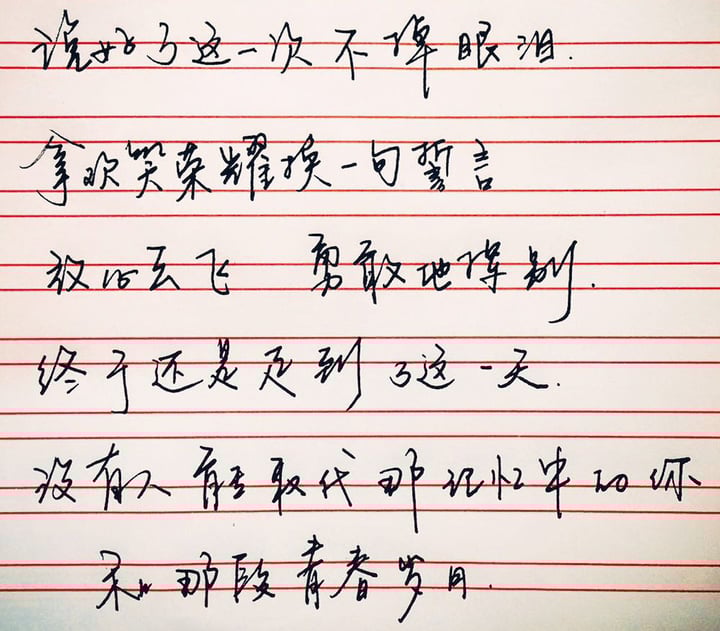 说好了这一次不掉眼泪.
拿欢笑荣耀换一句誓言
放心去飞 勇敢地挥别.
终于还是走到了这一天.
没有人能取代那记忆中的你
和那段青春岁月.